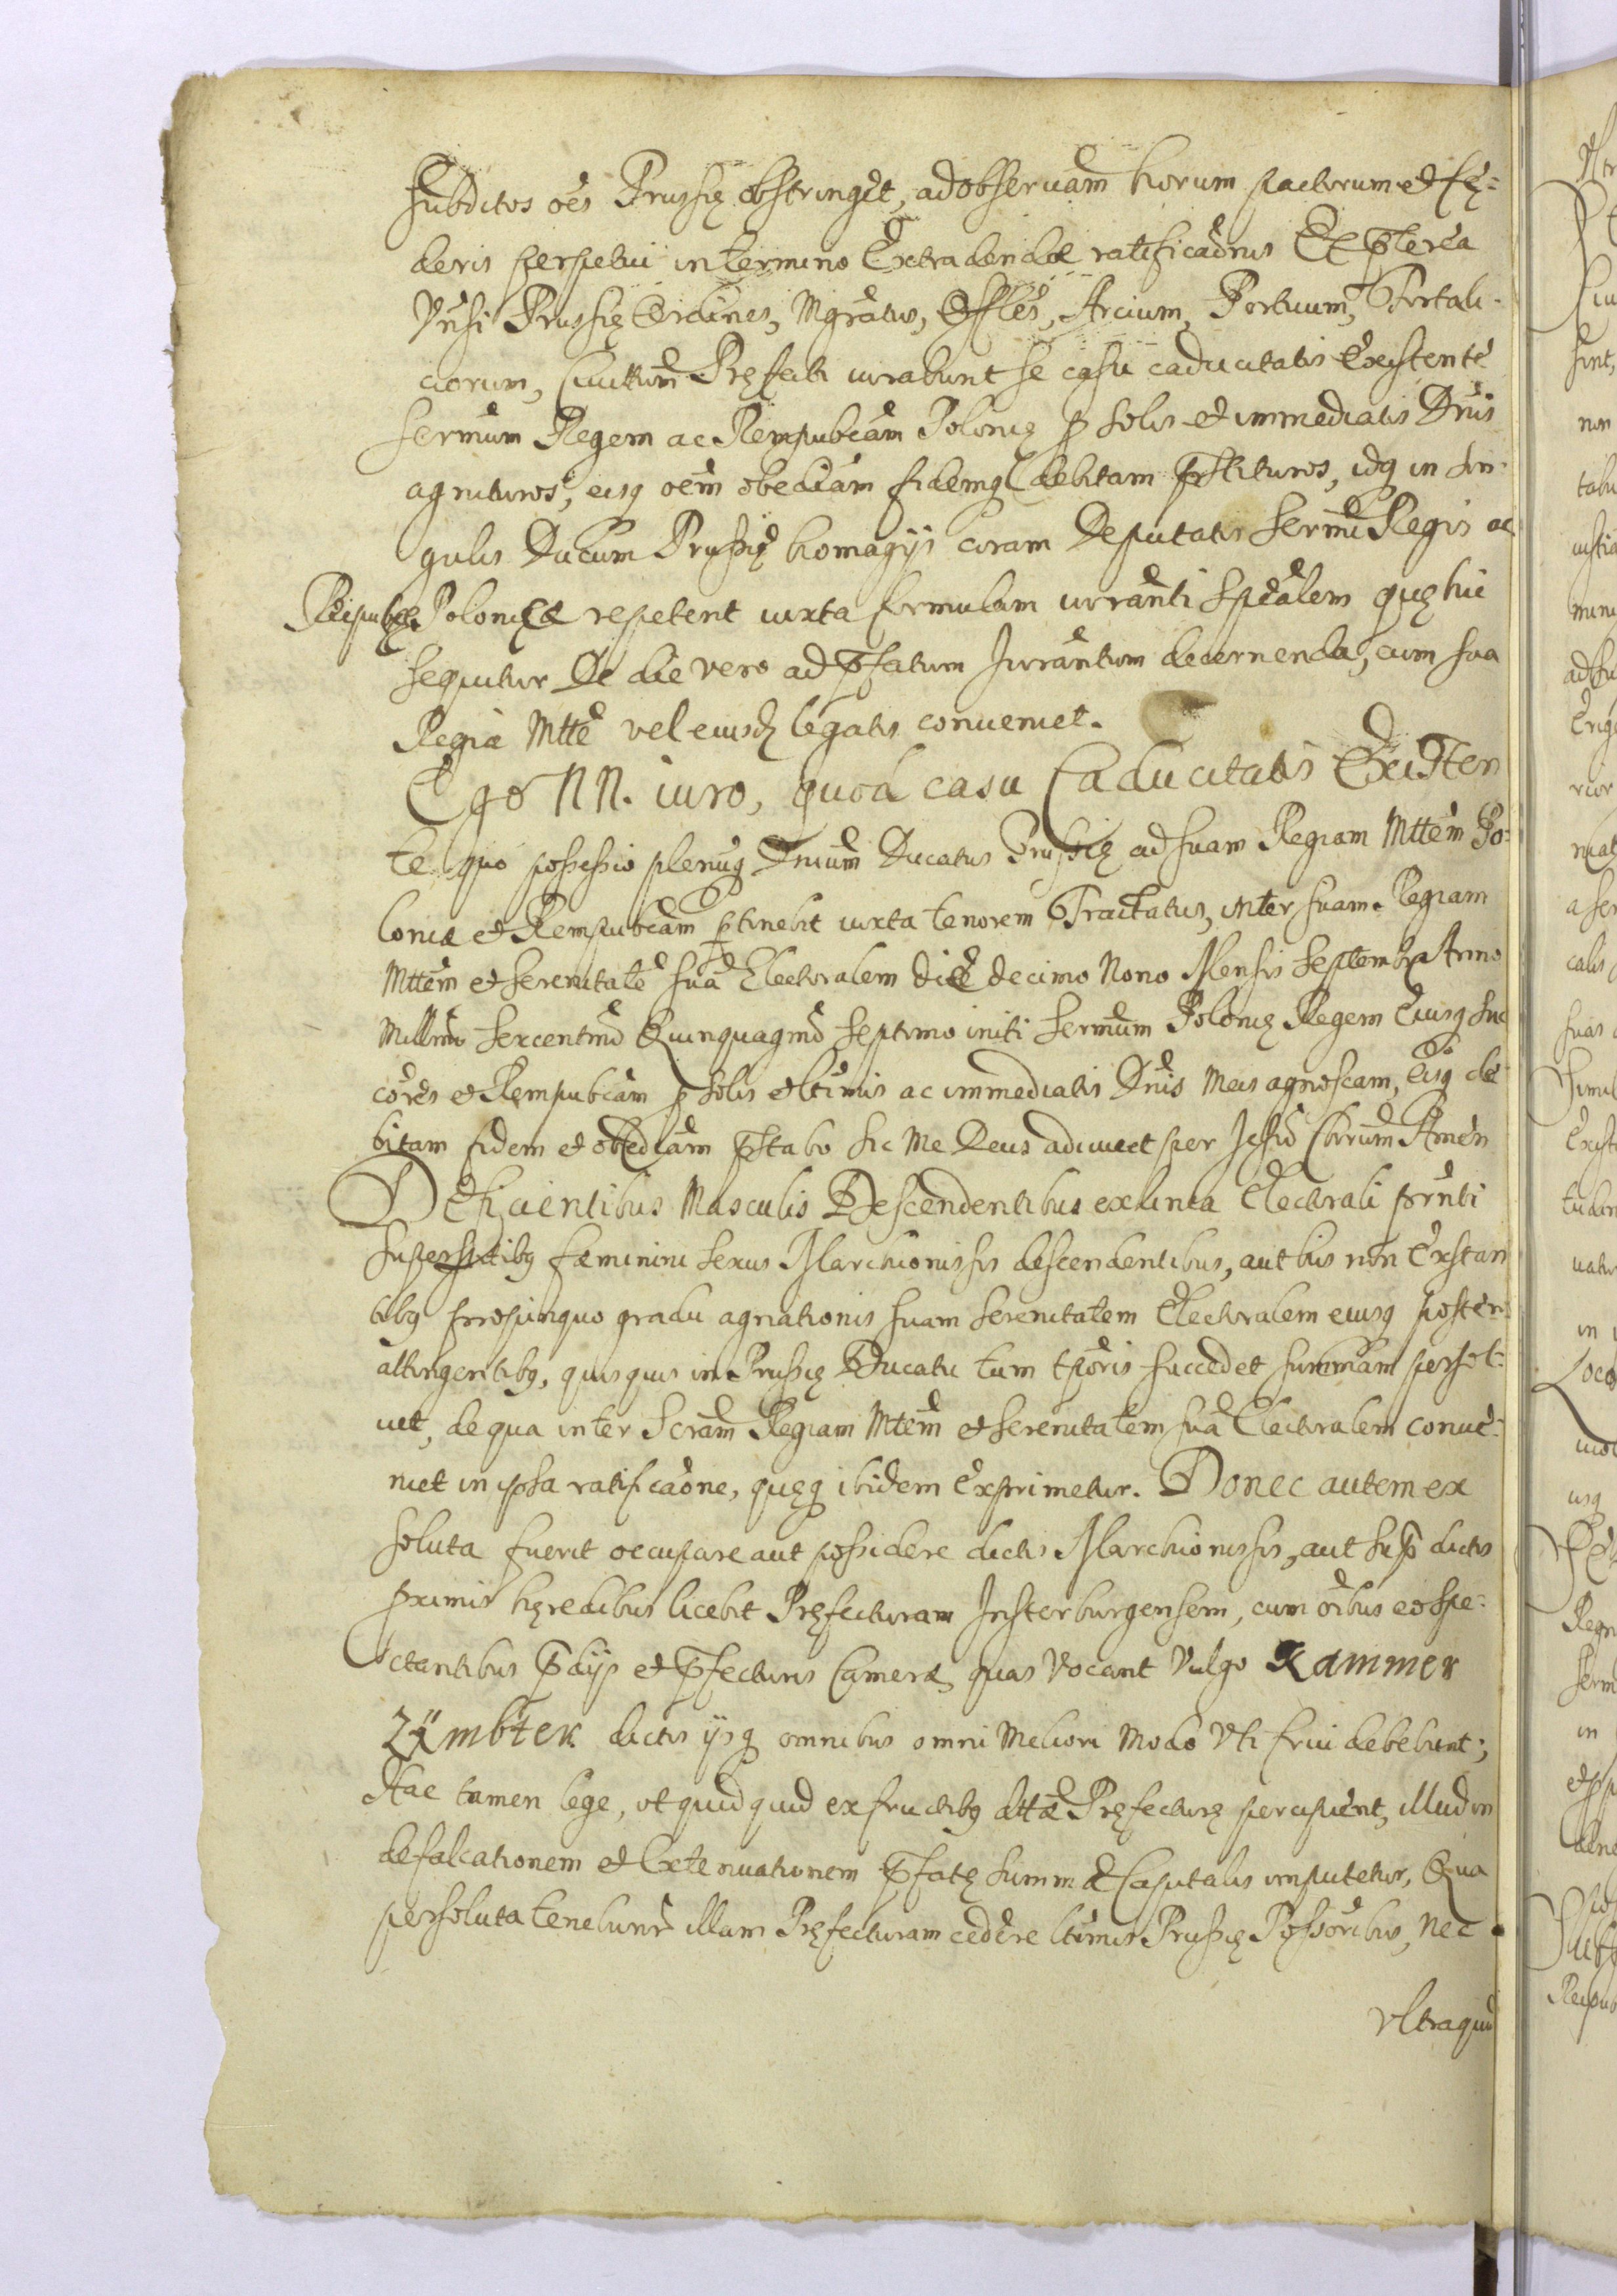 Subditos oẽs Prussię obstringet, ad observam̃ horum pactorum et fę-
deris perpetui in termino Extradendae ratificãonis Et p̃terea
Vñsi Prussię Ordines, Mgrãtus, Offles, Arcium, Portuum, Fortali-
ciorum, Civitum̃ Pręfecti iurabunt se casu caducitatis Existente
sermũm Regem ac Rempubcãm Polonię p solis et immediatis Dnĩs
agnituros, eisq oẽm obediãm fidemq debitam p̃stituros, idq in sin-
gulis Ducum Prussię homagijs coram Deputatis sermĩ Regis ac
Reipubcæ Polonicæ repetent iuxta formulam iurãnti spẽalem quę hic
sequitur De die vero ad p̃fatum Jurãntum decernenda, cum sua
Regia Mtte vel eiusd legatis conveniet.
Ego NN. iuro, quod casu Caducitatis Existen
te quo possessio plenuq Dnium Ducatus Prussię ad suam Regiam Mttem Po-
loniæ et Rempubcãm ptinebit iuxta tenorem Tractatus, inter suam Regiam
Mttem et serenitatẽ suã Electoralem die decimo Nono Mensis Septembris Anno
Millmo sexcentmo Quinquagmo septimo initi sermũm Polonię Regem Eiusq suc
cõres et Rempubcãm p solis ltimis ac immediatis Dnĩs Meis agnoscam, Eisq de
bitam fidem et obediãm p̃stabo sic Me Deus adiuvet per Jesũ Chrũm Amen
Deficientibus Masculis Descendentibus ex linea Electorali prñti
superstitibq fæminini sexus Marchionissis descendentibus, aut his non Exstan
tibq propinquo gradu agnationis suam serenitatem Electoralem eiusq poster
attingentibq, quisquis in Prussię Ducatu tum tporis succedet summam persol-
vet, de qua inter Scram Regiam Mtem et serenitatem suã Electoralem conve-
niet in ipsa ratificãone, quęq ibidem Exprimetur. Donec autem ex
soluta fuerit occupare aut possidere dictis Marchionissis, aut sup̃ dictis
proximis hęredibus licebit Pręfecturam Insterburgensem, cum oĩbus eo spe-
ctantibus p̃dijs et p̃fecturis Cameræ, quas Vocant Vulgo Kammer
Zämbter dictis ijsq omnibus omni Meliori Modo Vti frui debebunt;
Hac tamen lege, ut quidquid ex fructibq dttæ Pręfecturę percipient, illud in
defalcationem et Extenuationem p̃fatę summæ Capitalis imputetur, Qua
persoluta tenebuntr illam Pręfecturam cedere ltimis Prussię Possõribus, nec
Vltra quid